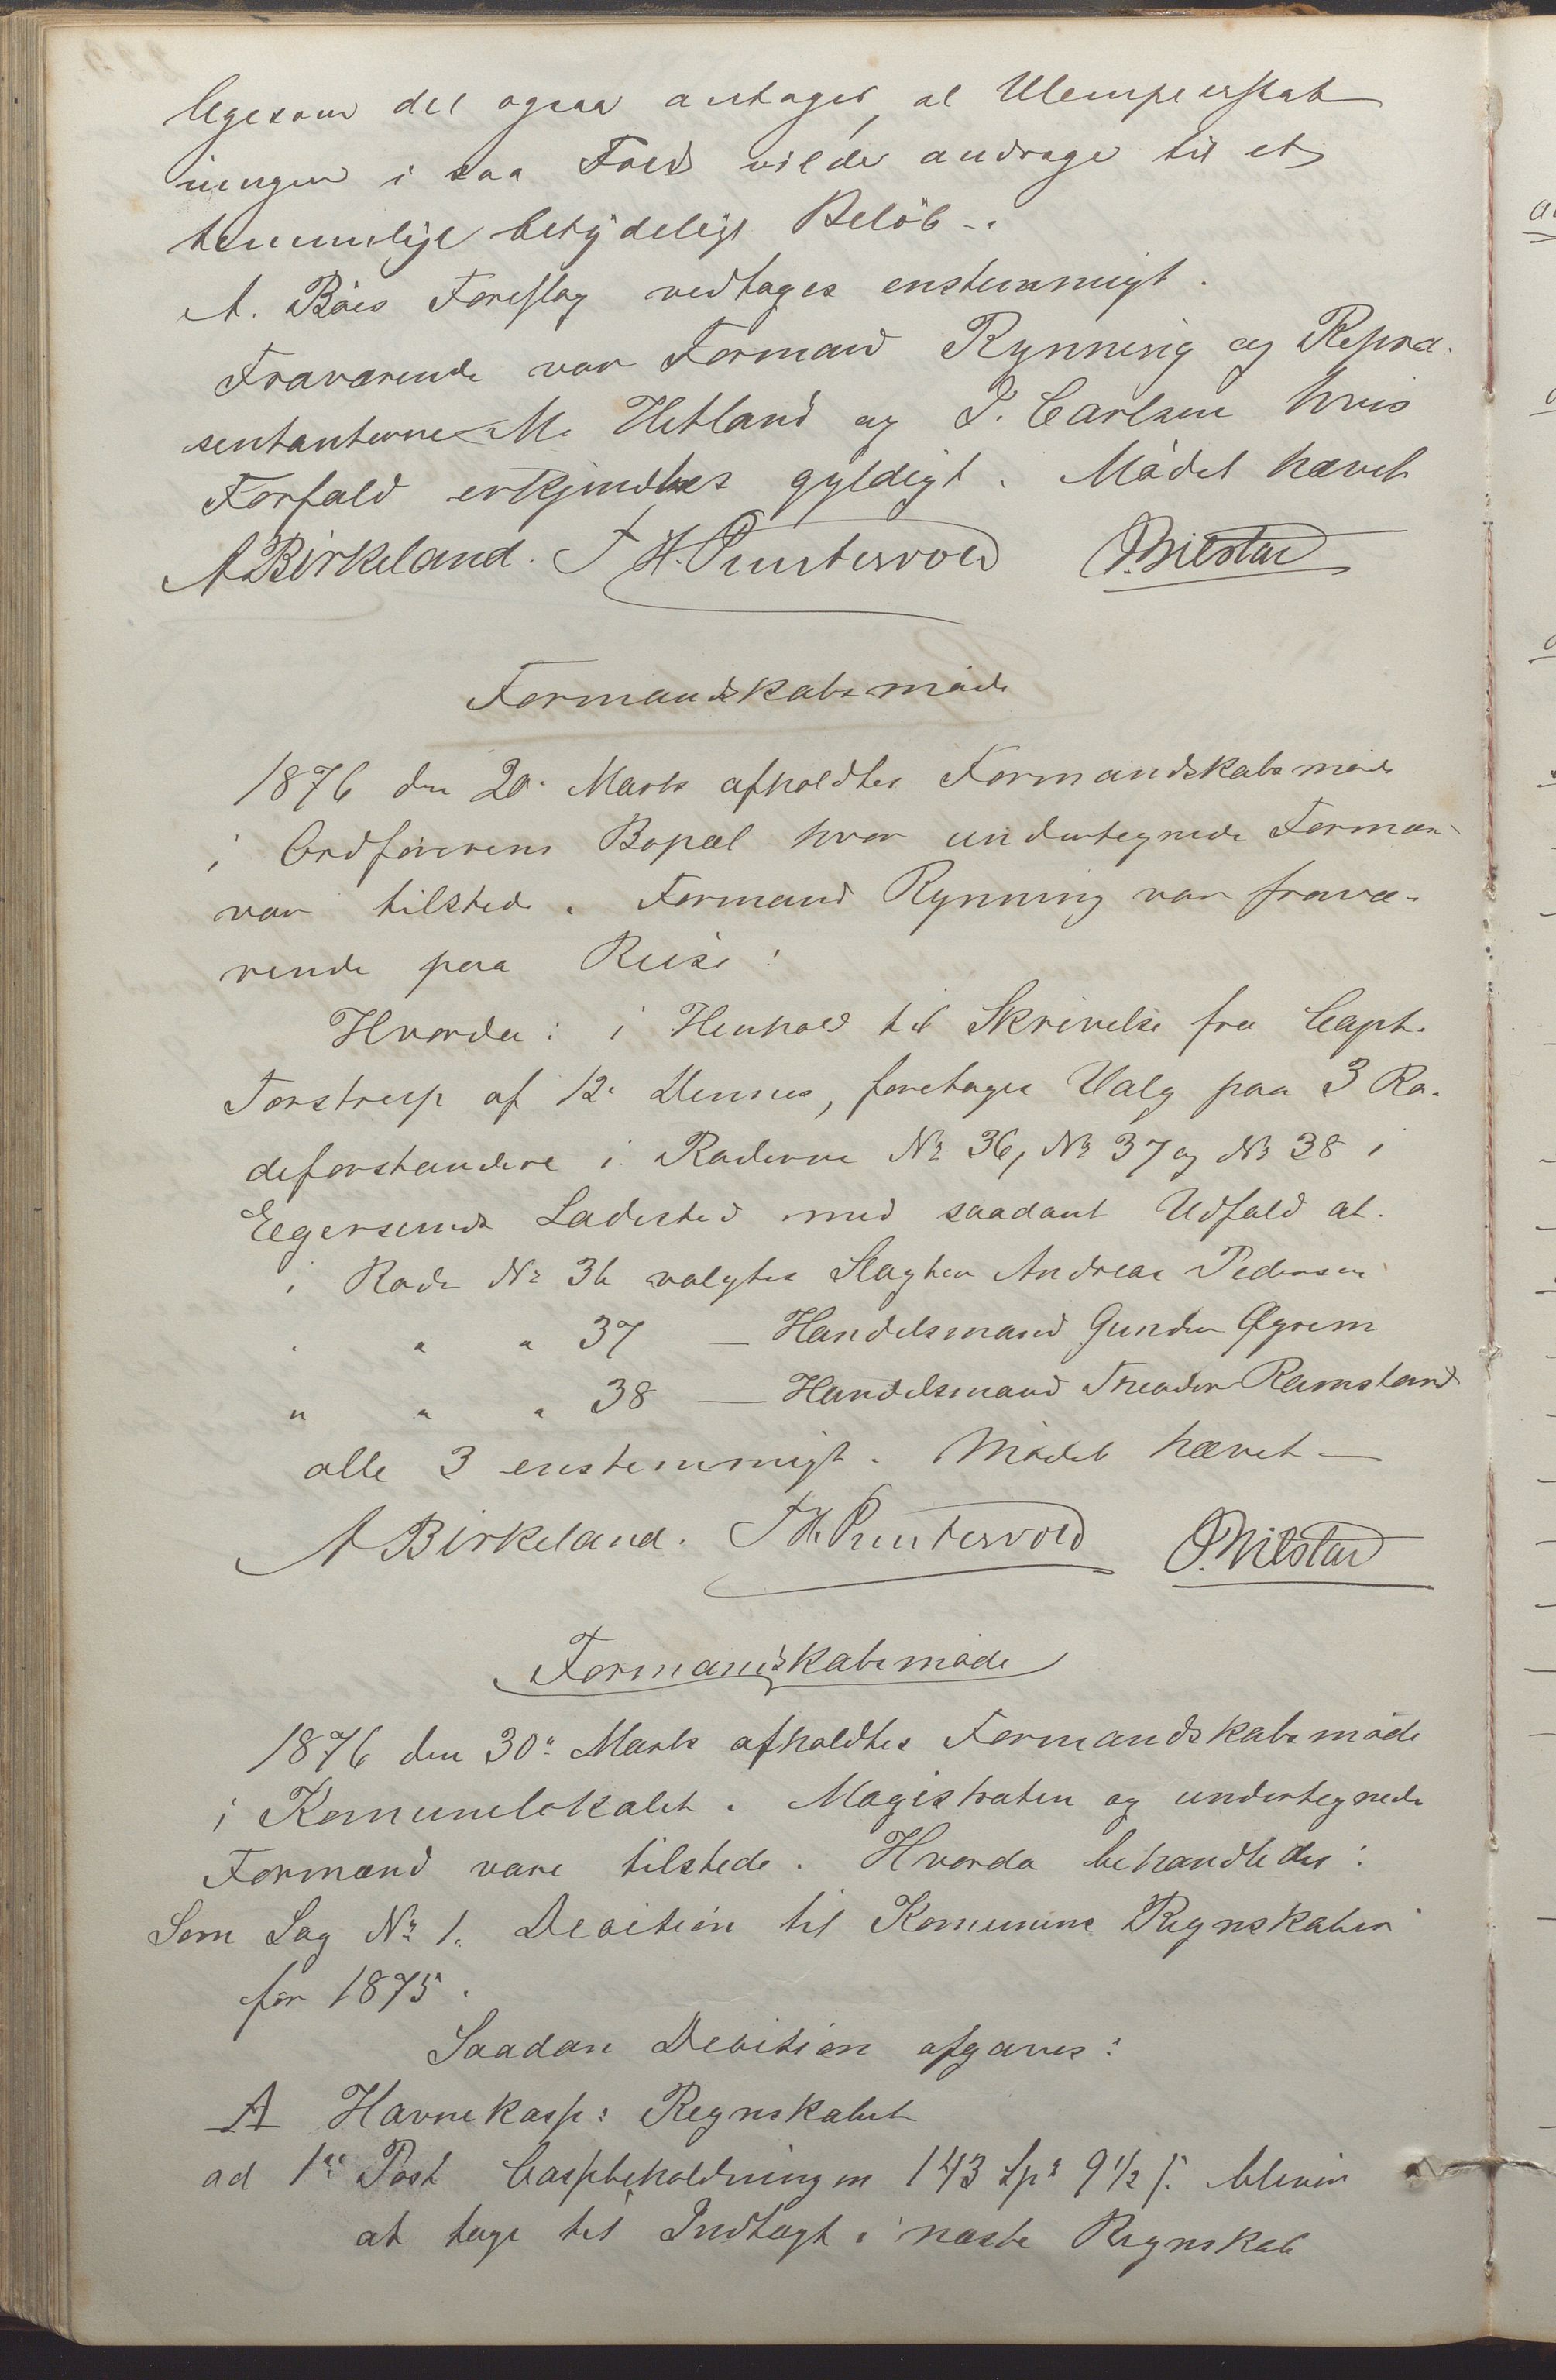 ligesom det ogsaa antages, at Ulempeerstat
ningen i saa Fald vilde andrage til et
temmelige betydeligt Beløb -.
A. Bøes Forslag vedtages enstemmigt.
Fraværende var Formand Rynning og Repræ-
sentanterne M. Hetland og P. Carlsen hvis
Forfald erkjendtes gyldigt. Mødet hævet
A Birkeland. T H. Puntervold O. Mitstad
Formandskabsmøde
1876 den 20. Marts afholdtes Formandskabsmøde
i Ordførerens Bopæl hvor undertegnede Formæn-
var tilstede. Formand Rynning var fravæ-
rende paa Reise:
Hvorda: i Henhold til Skrivelse fra Capt.
Torstrup af 12. Dennes, foretages Valg paa 3 Ro-
deforstandere i Roderne No 36, No 37 og No 38 i
Egersunds Ladested med saadant Udfald at.
i Rode No 36 valgtes Slagter Andreas Pedersen
" " " 37 — Handelsmand Gunder Øgrem
" " " 38 — Handelsmand Theodor Ramsland
alle 3 enstemmigt. Mødet hævet —
A Birkeland. T H. Puntervold O. Mitstad
Formandskabsmøde
1876 den 30. Marts afholdtes Formandskabsmøde
i Komunelokalet. Magistraten og undertegnede
Formænd vare tilstede. Hvorda behandledes:
Som Sag No 1. Decition til Komunens Regnskaber
for 1875.
Saadan Decition afgaves:
A Havnekass: Regnskabet
ad 1ste Post Cassbeholdningen 143 Sp: 9 1/2 s. bliver
at tage til Indtægt i næste Regnskab